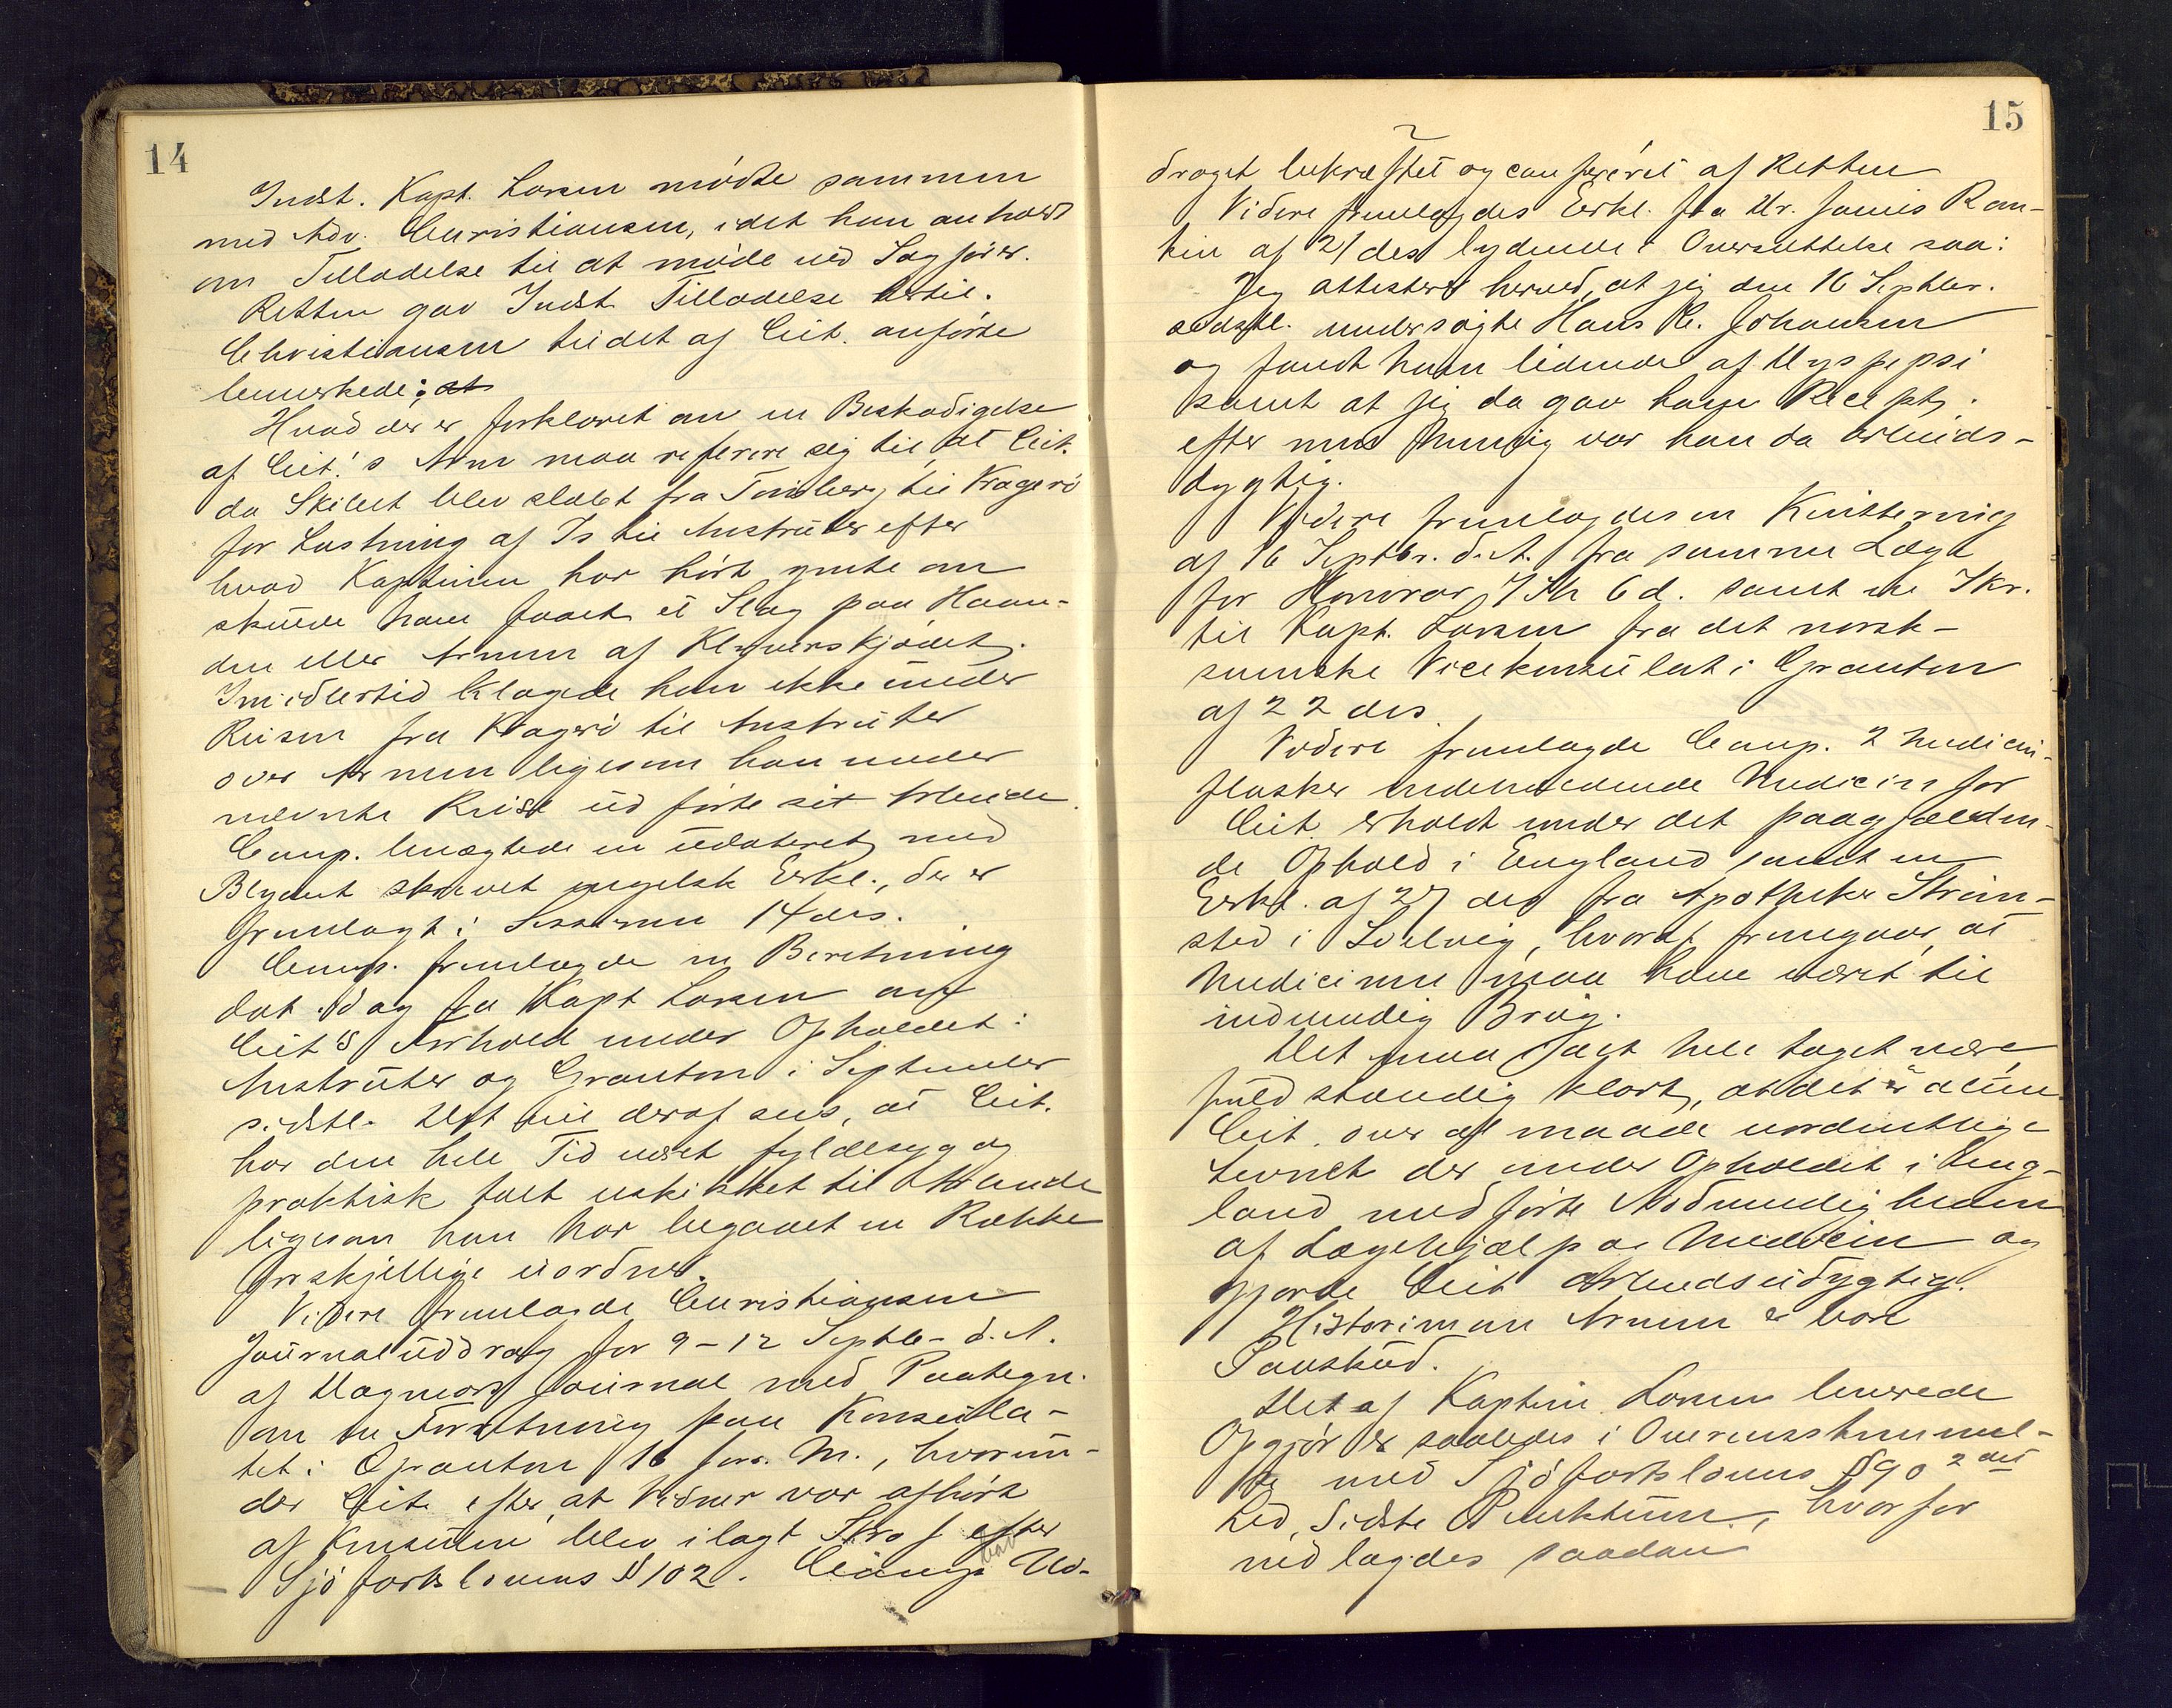 14
Indst. Kapt. Larsen mødte sammen
med Adv. Christiansen, idet han anholdt
om Tilladelse til at møde ved Sagfører.
Retten gav Indst. Tilladelse hertil.
Christiansen til det af Cit. anførte
bemerkede: at
Hvad der er forklaret om en Beskadigelse
af Cit.'s Arm maa referere sig til, at Cit.
da Skibet blev slæbt fra Tønsberg til Kragerø
for Lastning af Is til Anstruter efter
hvad Kapteinen har hørt ymte om
skulde have faaet et Slag paa Haan-
den eller Armen af Klyverskjødet.
Imidlertid klagede han ikke under
Reisen fra Kragerø til Anstruter
over Armen ligesom han under
nævnte Reise udførte sit Arbeide.
Comp. benægtede en udateret med
Blyant skrevet engelsk Erkl., der er
fremlagt i Sessionen 14 ds.
Comp. fremlagde en Beretning
dat. idag fra Kapt Larsen om
Cit's Forhold under Opholdet i
Anstruter og Granton i September
sidstl. Det vil deraf sees, at Cit.
har den hele Tid været fyldesyg og
praktisk talt uskikket til Arbeide
ligesom han har begaaet en Række
forskjellige uordner.
Videre fremlagde Christiansen
Journaluddrag for 9-12 Septb. d. A.
af Dagmars Journal med Paategn.
om en Forretning paa Konsula-
tet i Granton 16 forr. M., hvorun-
der Cit. efter, at Vidner var afhørt
af Konsulen blev ilagt Straf efter
Sjøfartslovens § 102. Comp. bad Ud-
15
draget bekræftet og confereret af Retten
Videre fremlagdes Erkl. fra Dr. James Ran-
kin af 21 des lydende i Oversættelse saa:
Jeg attesterer herved, at jeg den 16 Septbr.
sidstl. undersøgte Hans Chr. Johansen
og fandt ham lidende af Dyspepsi
samt at jeg da gav ham Recept;
efter min Mening var han da arbeids-
dygtig.
Videre fremlagdes en Kvittering
af 16 Septbr. d. A. fra samme Læge
for Honorar 7 Sh 6 d. samt en Skr.
til Kapt. Larsen fra det norsk-
svenske Vicekonsulat i Granton
af 22 ds.
Videre fremlagde Comp. 2 Medicin-
flasker indeholdende Medicin for
Cit. erholdt under det paagjælden-
de Ophold i England samt en
Erkl. af 27 des fra Apotheker Strøm-
sted i Svelvig, hvoraf fremgaar, at
Medicinen maa have været til
indvendig Brug.
Det maa i det hele taget være
fuldstændig klart, at det er alene
Cit. over al maade uordentlige
Levnet der under Opholdet i Eng-
land medførte Nødvendigheden
af Lægehjælp og Medicin og
gjorde Cit arbeidsudygtig.
Historien om Armen er bare
Paaskud.
Det af Kaptein Larsen leverede
Opgjør er saaledes i Overensstemmel-
se med Sjøfartslovens § 90 2 det
Led, sidste Punktum, hvorfor
nedlagdes saadan